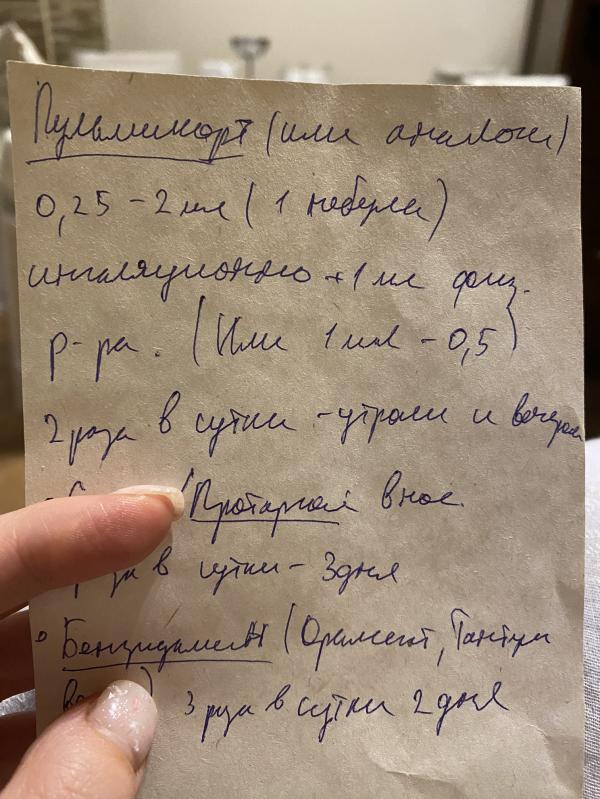 Пульмикорт (или аналоги)
0,25 - 2 мл (1 небула)
ингаляционно + 1 мл физ.
р-ра. (Или 1 мл - 0,5)
2 раза в сутки - утром и вечером
(Протаргол в нос
в сутки - 3 дня
Бензидамин (Орасепт, Тантум
3 раза в сутки 2 дня